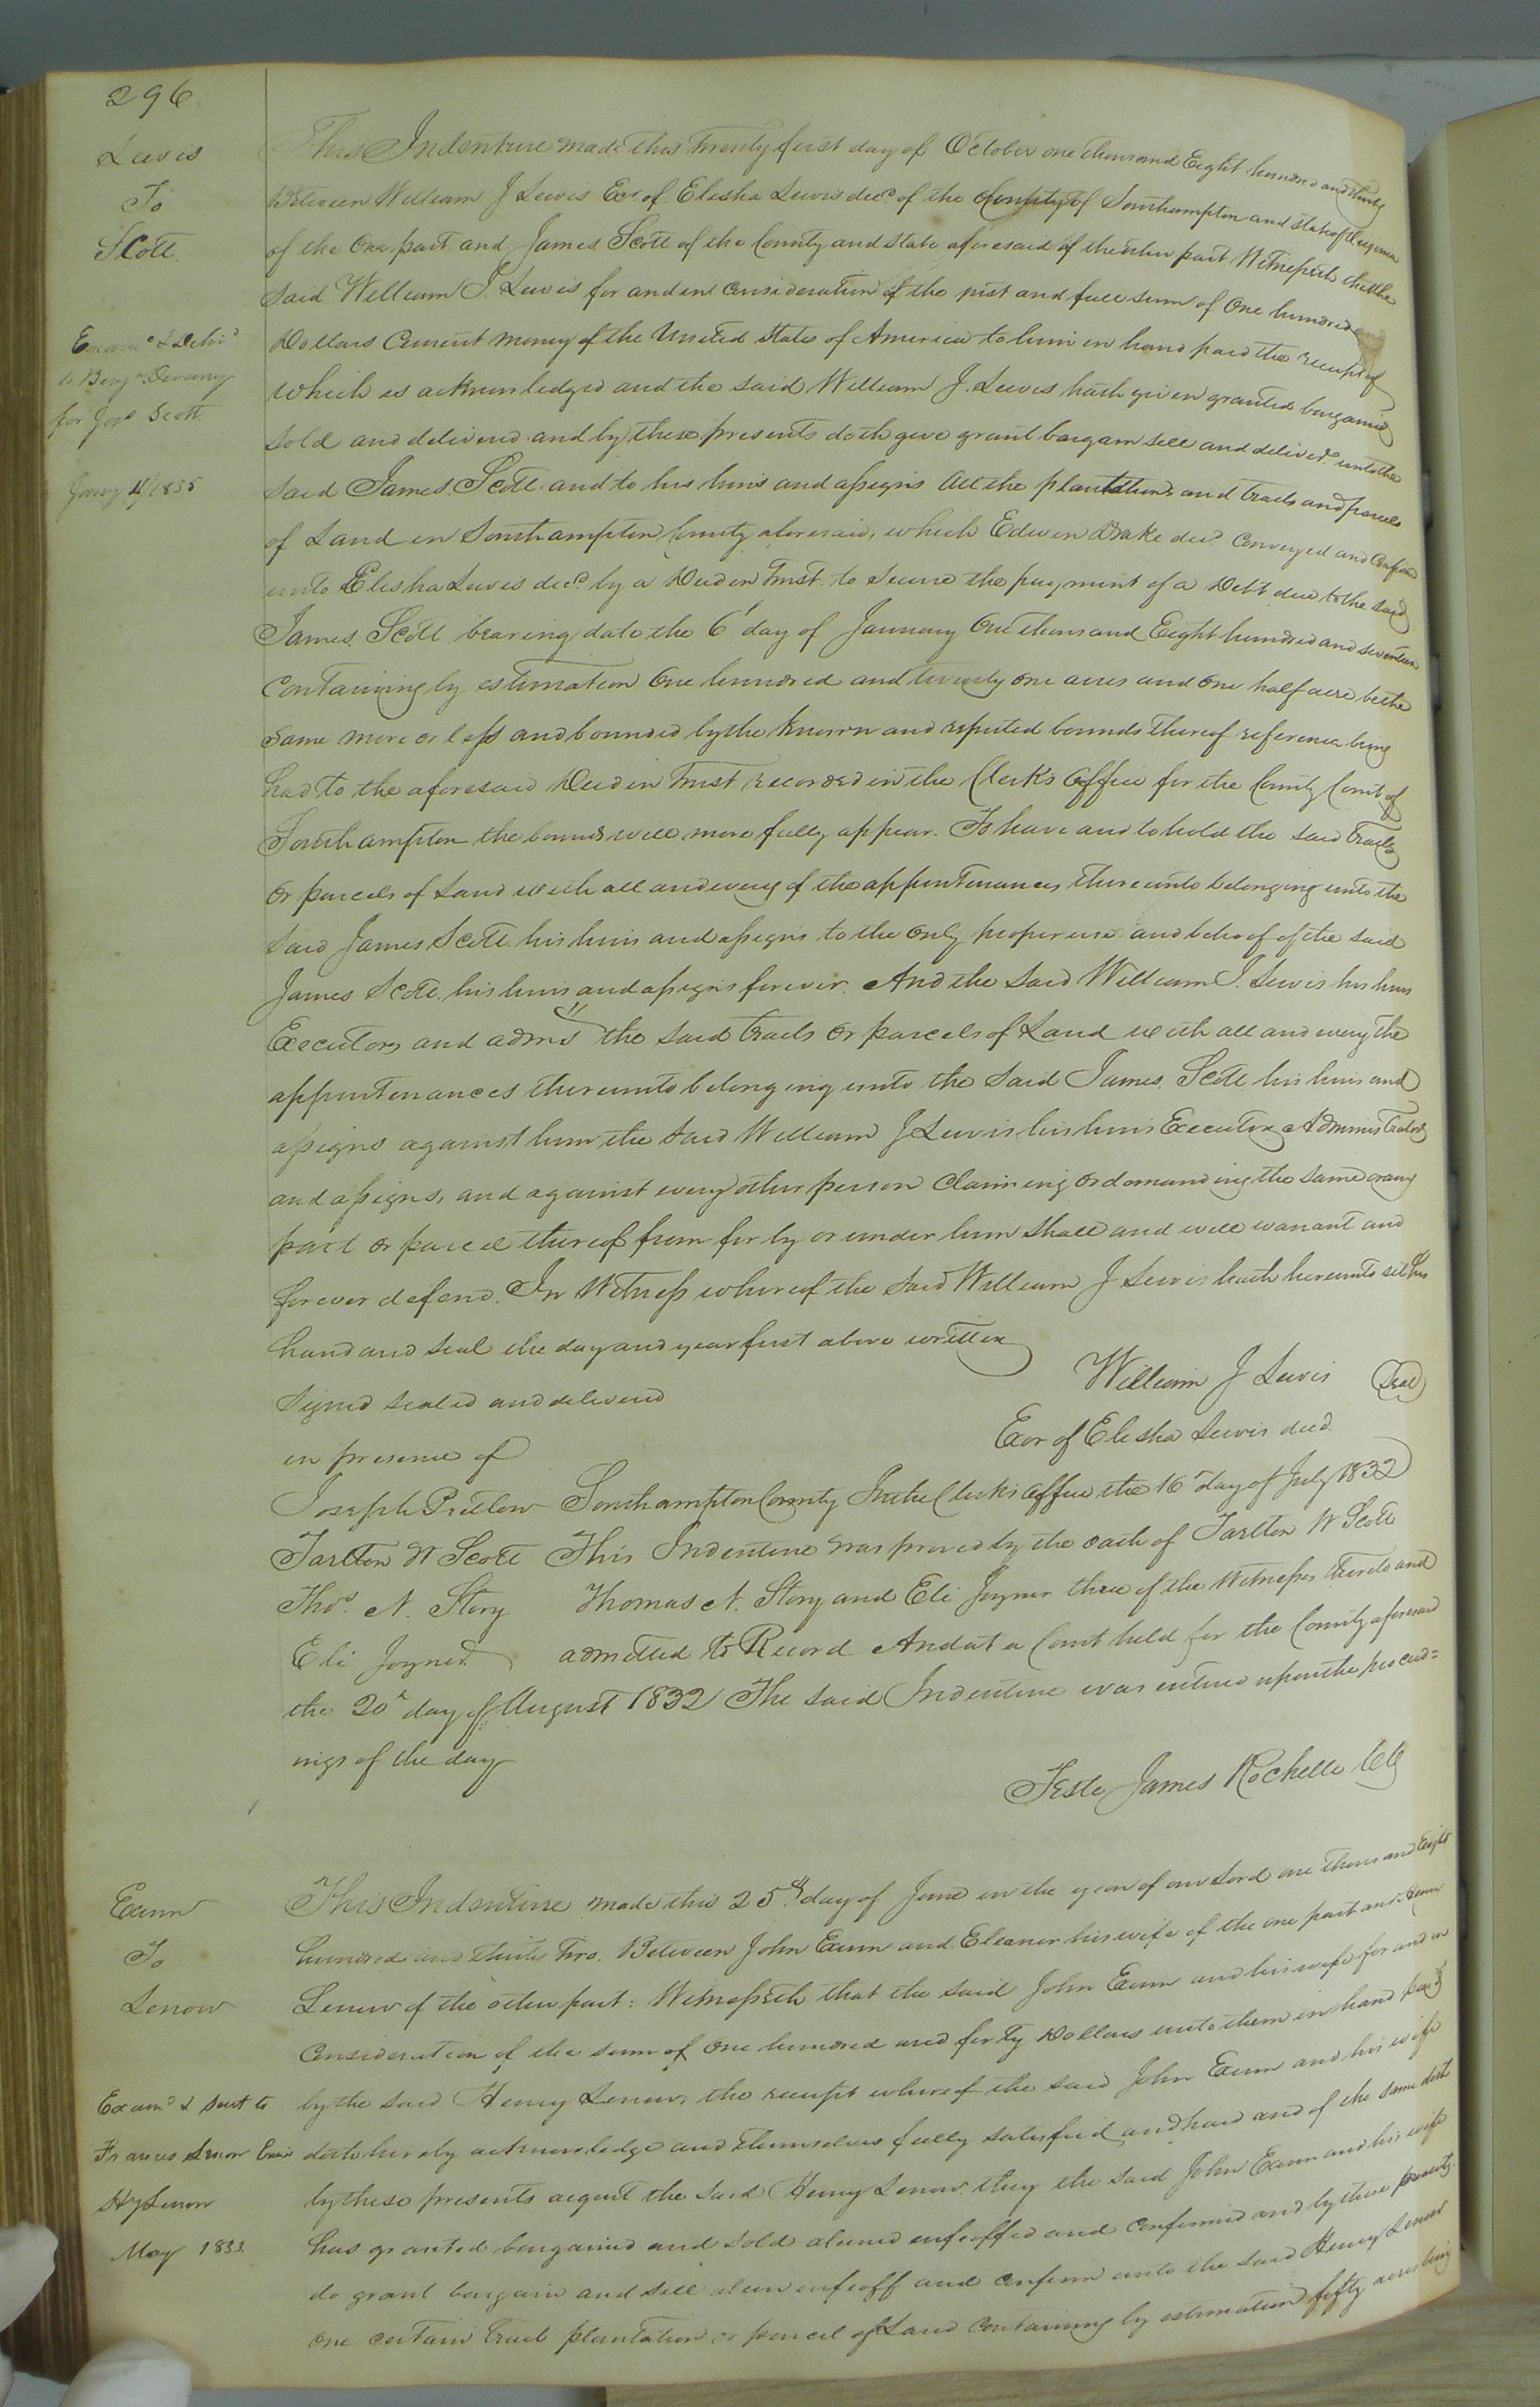 296
Lewis
To
Scott.
Examd & Delivd
to Benja Devany
for Jas Scott.
Jany 4/1835
This Indenture made this twenty first day of October one thousand Eight hundred and thirty
Between William J Lewis Exr of Elisha Lewis decd of the County of Southampton and state of Virginia
of the One part and James Scott of the County and state aforesaid of the other part Witnesseth that the
said William J. Lewis for and in consideration of the just and full sum of One hundred
Dollars Current money of the United States of America to him in hand paid the receipt of
which is acknowledged and the said William J. Lewis hath given granted bargained
sold and delivered and by these presents doth give grant bargain sell and deliver unto the
said James Scott and to his heirs and assigns all the plantations and tracts and parcels
of Land in Southampton County aforesaid, which Edwin Drake decd. Conveyed and Confirmed
unto Elisha Lewis decd by a Deed in Trust to secure the payment of a Debt due to the said
James Scott bearing date the 6' day of January One thousand Eight hundred and seventeen
Containing by estimation One hundred and twenty one acres and one half acre be the
same more or less and bounded by the known and reputed bounds thereof reference being
had to the aforesaid Deed in Trust recorded in the Clerk's Office for the County Court of
Southampton the bounds will more fully appear. To have and to hold the said Tracts
or parcels of Land with all and every of the appurtenances thereunto belonging unto the
said James Scott his heirs and assigns to the only proper use and behoof of the said
James Scott his heirs and assigns forever. And the said William J. Lewis his heirs
Executors and adms the said tracts or parcels of Land with all and every the
appurtenances thereunto belonging unto the said James Scott his heirs and
assigns against him the said William J Lewis his heirs Executors Administrators
and assigns, and against every other person Claiming or demanding the same or any
part or parcel thereof from for by or under him shall and will warrant and
forever defend. In Witness whereof the said William J Lewis hath hereunto set his
hand and seal the day and year first above written
William J Lewis (Seal)
Signed sealed and delivered
in presence of
Exor of Elisha Lewis decd.
Joseph Pretlow Southampton County In the Clerk's Office the 16' day of July 1832
Tarlton W Scott This Indenture was proved by the oath of Tarlton W Scott
Thos. N. Story Thomas N. Story and Eli Joyner three of the Witnesses thereto and
Eli Joyner admitted to Record And at a Court held for the County aforesaid
the 20' day of August 1832 The said Indenture was entered upon the proceed=
ings of the day
Teste James Rochelle Clk
Exum
To
Lenow
Examd & sent to
Frances Lenow Exix
Hy Lenow
May 1833.
This Indenture made this 25th day of June in the year of our Lord one thousand Eight
hundred and thirty two. Between John Exum and Eleanor his wife of the one part and Henry
Lenow of the other part: Witnesseth that the said John Exum and his wife for and in
Consideration of the sum of One hundred and forty Dollars unto them in hand paid
by the said Henry Lenow, the receipt whereof the said John Exum and his wife
doth hereby acknowledge and themselves fully satisfied and paid and of the same doth
by these presents acquit the said Henry Lenow. they the said John Exum and his wife
has granted bargained and sold aliened enfeoffed and Confirmed and by these presents
do grant bargain and sell alien enfeoff and Confirm unto the said Henry Lenow
one certain Tract plantation or parcel of Land Containing by estimation fifty acres being